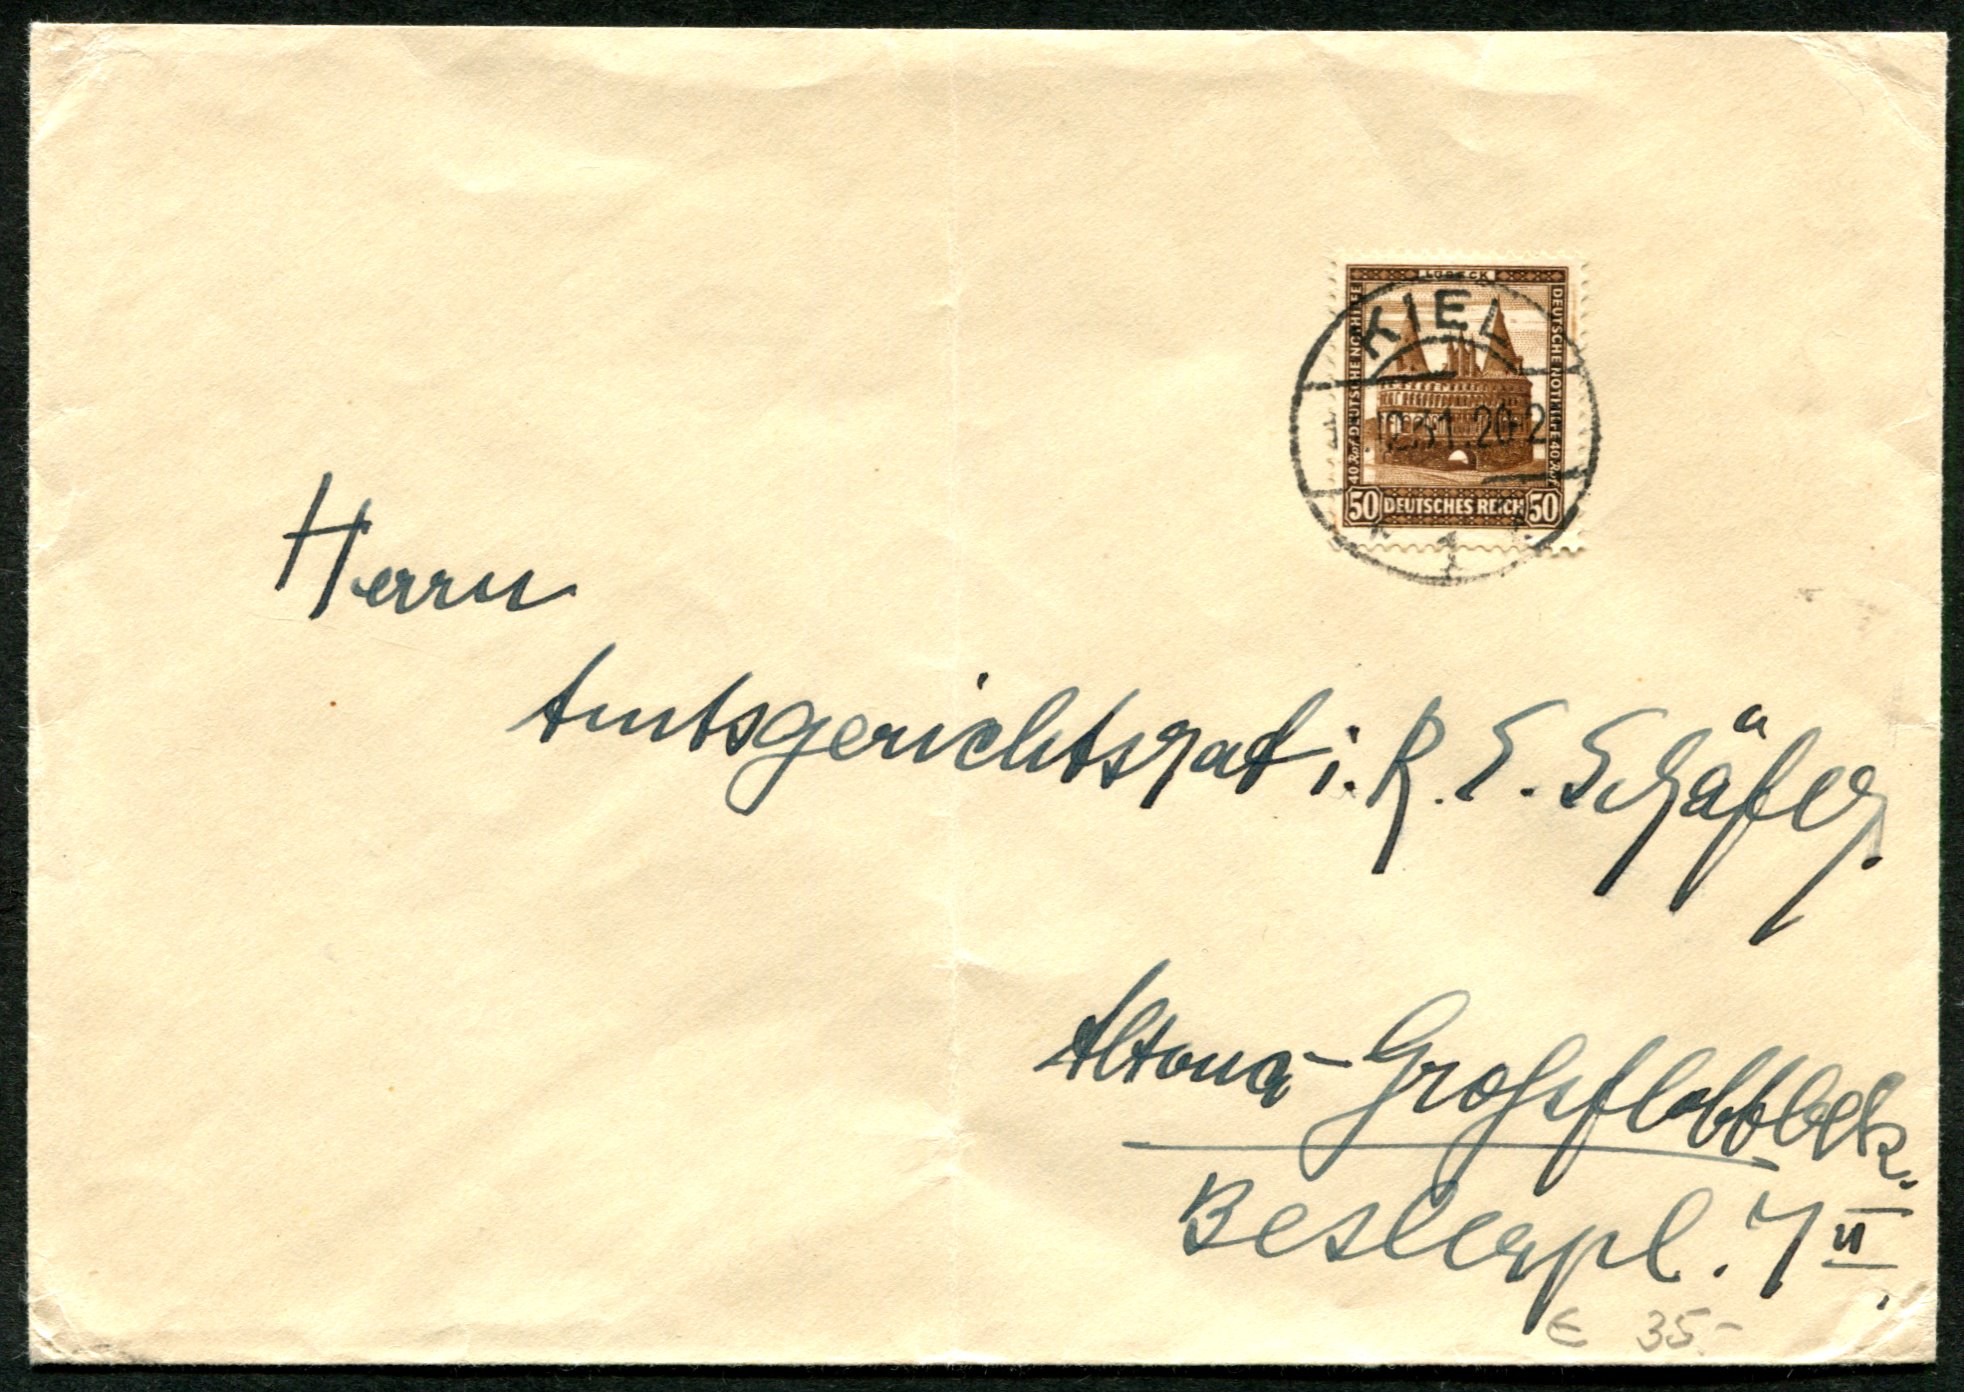 LÜBECK
DEUTSCHE NOTHILFE 40 Rpf
DEUTSCHE NOTHILFE 40 Rpf
50 DEUTSCHES REICH 50
KIEL
31.20-2
1
Herrn
Amtsgerichtsrat i. R. E. Schäfer.
Altona-Grossflottbek.
Beslerpl. 7 II
€ 35.-